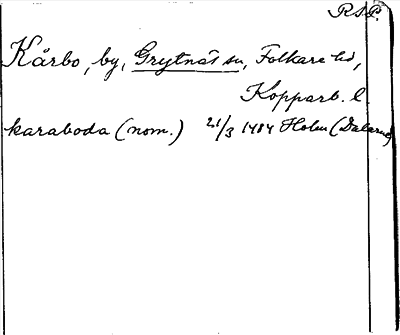 R.S.P.
Kårbo, by, Grytnäs sn, Folkare hd,
Kopparb. l
karaboda (nom.) 21/3 1484 Holm (Dalarne)